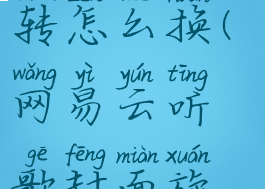 转怎么换(
wǎng yì yún tīng
网易云听
gē fēng miàn xuán
歌封面旋